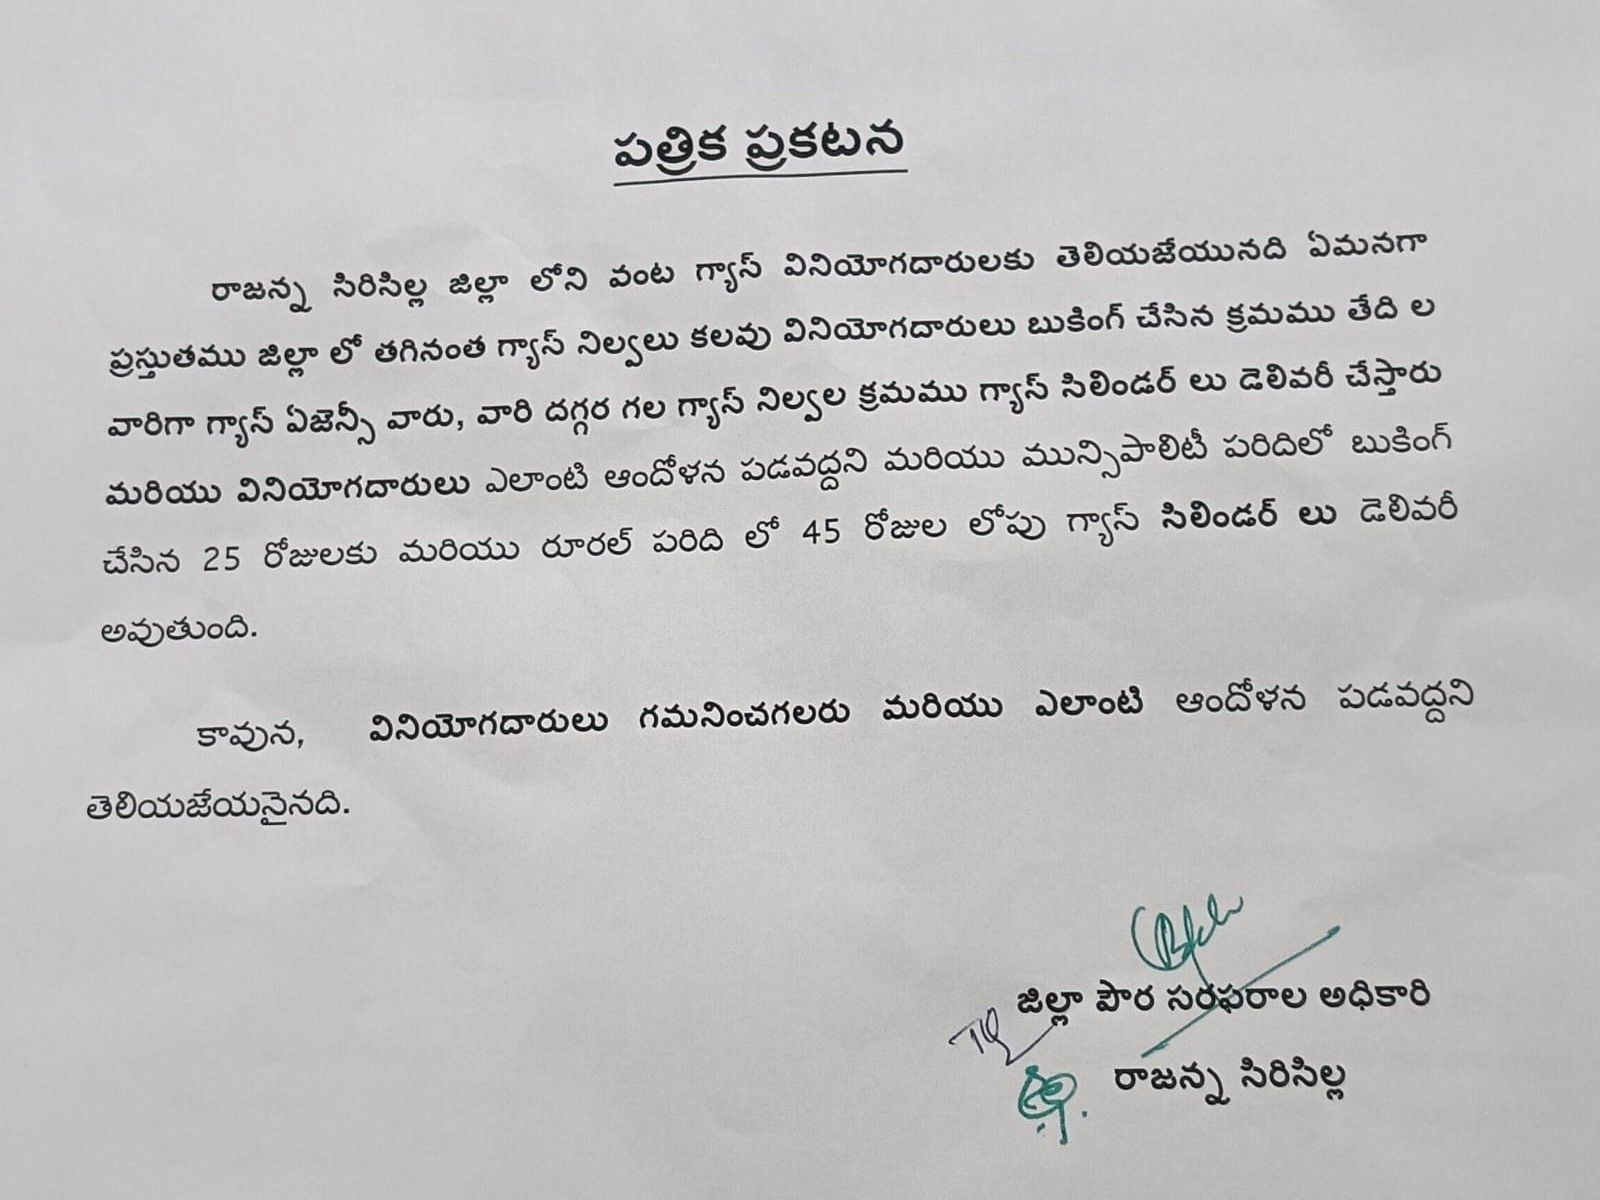 పత్రిక ప్రకటన
రాజన్న సిరిసిల్ల జిల్లా లోని వంట గ్యాస్ వినియోగదారులకు తెలియజేయునది ఏమనగా
ప్రస్తుతము జిల్లా లో తగినంత గ్యాస్ నిల్వలు కలవు వినియోగదారులు బుకింగ్ చేసిన క్రమము తేది ల
వారిగా గ్యాస్ ఏజెన్సీ వారు, వారి దగ్గర గల గ్యాస్ నిల్వల క్రమము గ్యాస్ సిలిండర్ లు డెలివరీ చేస్తారు
మరియు వినియోగదారులు ఎలాంటి ఆందోళన పడవద్దని మరియు మున్సిపాలిటీ పరిదిలో బుకింగ్
చేసిన 25 రోజులకు మరియు రూరల్ పరిది లో 45 రోజుల లోపు గ్యాస్ సిలిండర్ లు డెలివరీ
అవుతుంది.
కావున, వినియోగదారులు గమనించగలరు మరియు ఎలాంటి ఆందోళన పడవద్దని
తెలియజేయనైనది.
జిల్లా పౌర సరఫరాల అధికారి
రాజన్న సిరిసిల్ల